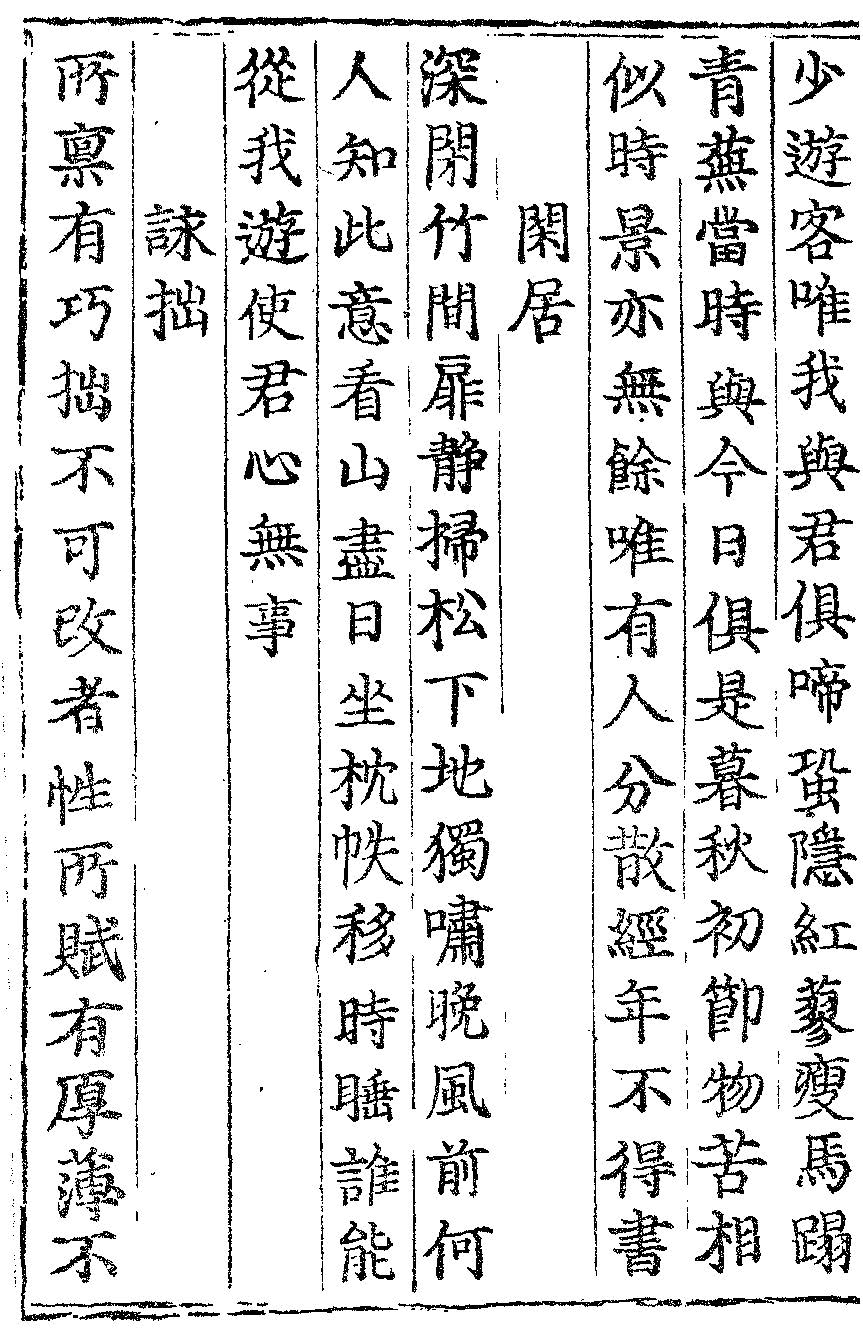 少遊客唯我與君俱啼蛩隱紅蓼瘦馬蹋
青蕪當時與今日俱是暮秋初節物苦相
似時景亦無餘唯有人分散經年不得書
閑居
深閉竹間扉静掃松下地獨嘯晚風前何
人知此意看山盡日坐枕帙移時睡誰能
從我遊使君心無事
詠拙
所禀有巧拙不可改者性所賦有厚薄不